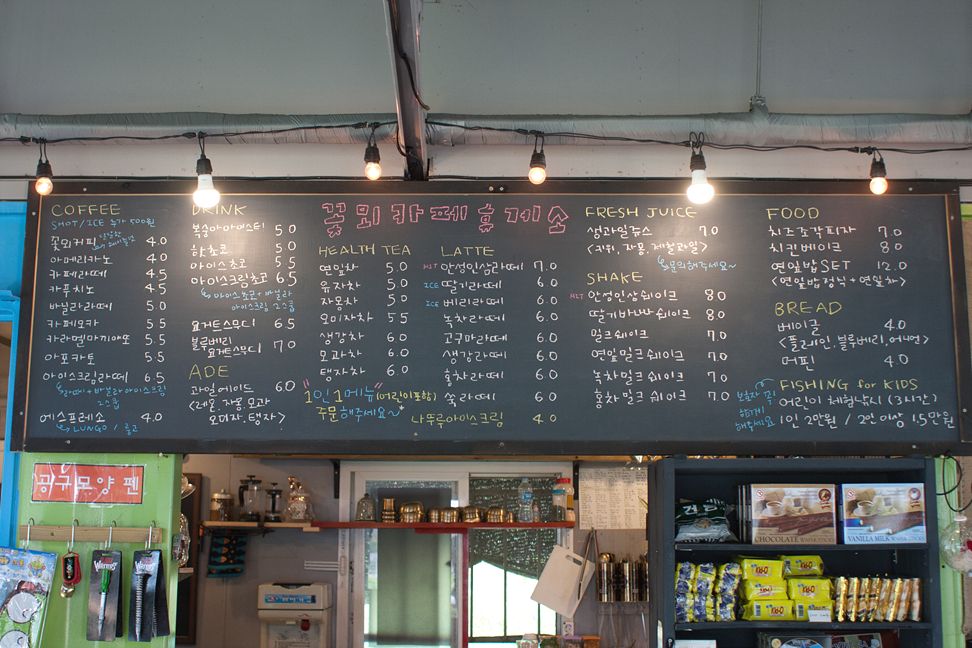 꽃뫼카페휴게소
COFFEE
SHOT/ICE 추가 500원
꽃뫼커피 4.0
아메리카노 4.0
카페라떼 4.5
카푸치노 4.5
바닐라라떼 5.0
카페모카 5.5
카라멜마끼아또 5.5
아포카토 5.5
아이스크림라떼 6.5
에스프레소 4.0
LUNGO /
DRINK
복숭아아이스티 5.0
핫초코 5.0
아이스초코 5.5
아이스크림초코 6.5
아이스초코+바닐라
아이스크림 2스쿱
요거트스무디 6.5
블루베리
요거트스무디 7.0
ADE
과일에이드 6.0
<레몬, 자몽, 모과
오미자, 탱자>
HEALTH TEA
연잎차 5.0
유자차 5.0
자몽차 5.0
오미자차 5.5
생강차 6.0
모과차 6.0
탱자차 6.0
"1인 1메뉴" (어린이포함)
주문해주세요~
LATTE
HOT 안성인삼라떼 7.0
ICE 딸기라떼 6.0
ICE 베리라떼 6.0
녹차라떼 6.0
고구마라떼 6.0
생강라떼 6.0
홍차라떼 6.0
쑥라떼 6.0
나뚜루아이스크림 4.0
FRESH JUICE
생과일쥬스 7.0
<키위, 자몽, 제철과일>
문의해주세요~
SHAKE
안성인삼쉐이크 8.0
딸기바나나쉐이크 8.0
밀크쉐이크 7.0
연잎밀크쉐이크 7.0
녹차밀크쉐이크 7.0
홍차밀크쉐이크 7.0
FOOD
치즈조각피자 7.0
치킨베이크 8.0
연잎밥SET 12.0
<연잎밥정식+연잎차>
BREAD
베이글 4.0
<플레인, 블루베리, 어니언>
머핀 4.0
FISHING for KIDS
어린이 체험낚시 (3시간)
1인 2만원 / 2인이상 1.5만원
보호자 꼭
함께
해주세요
광구모양 펜
CHOCOLATE
VANILLA MILK